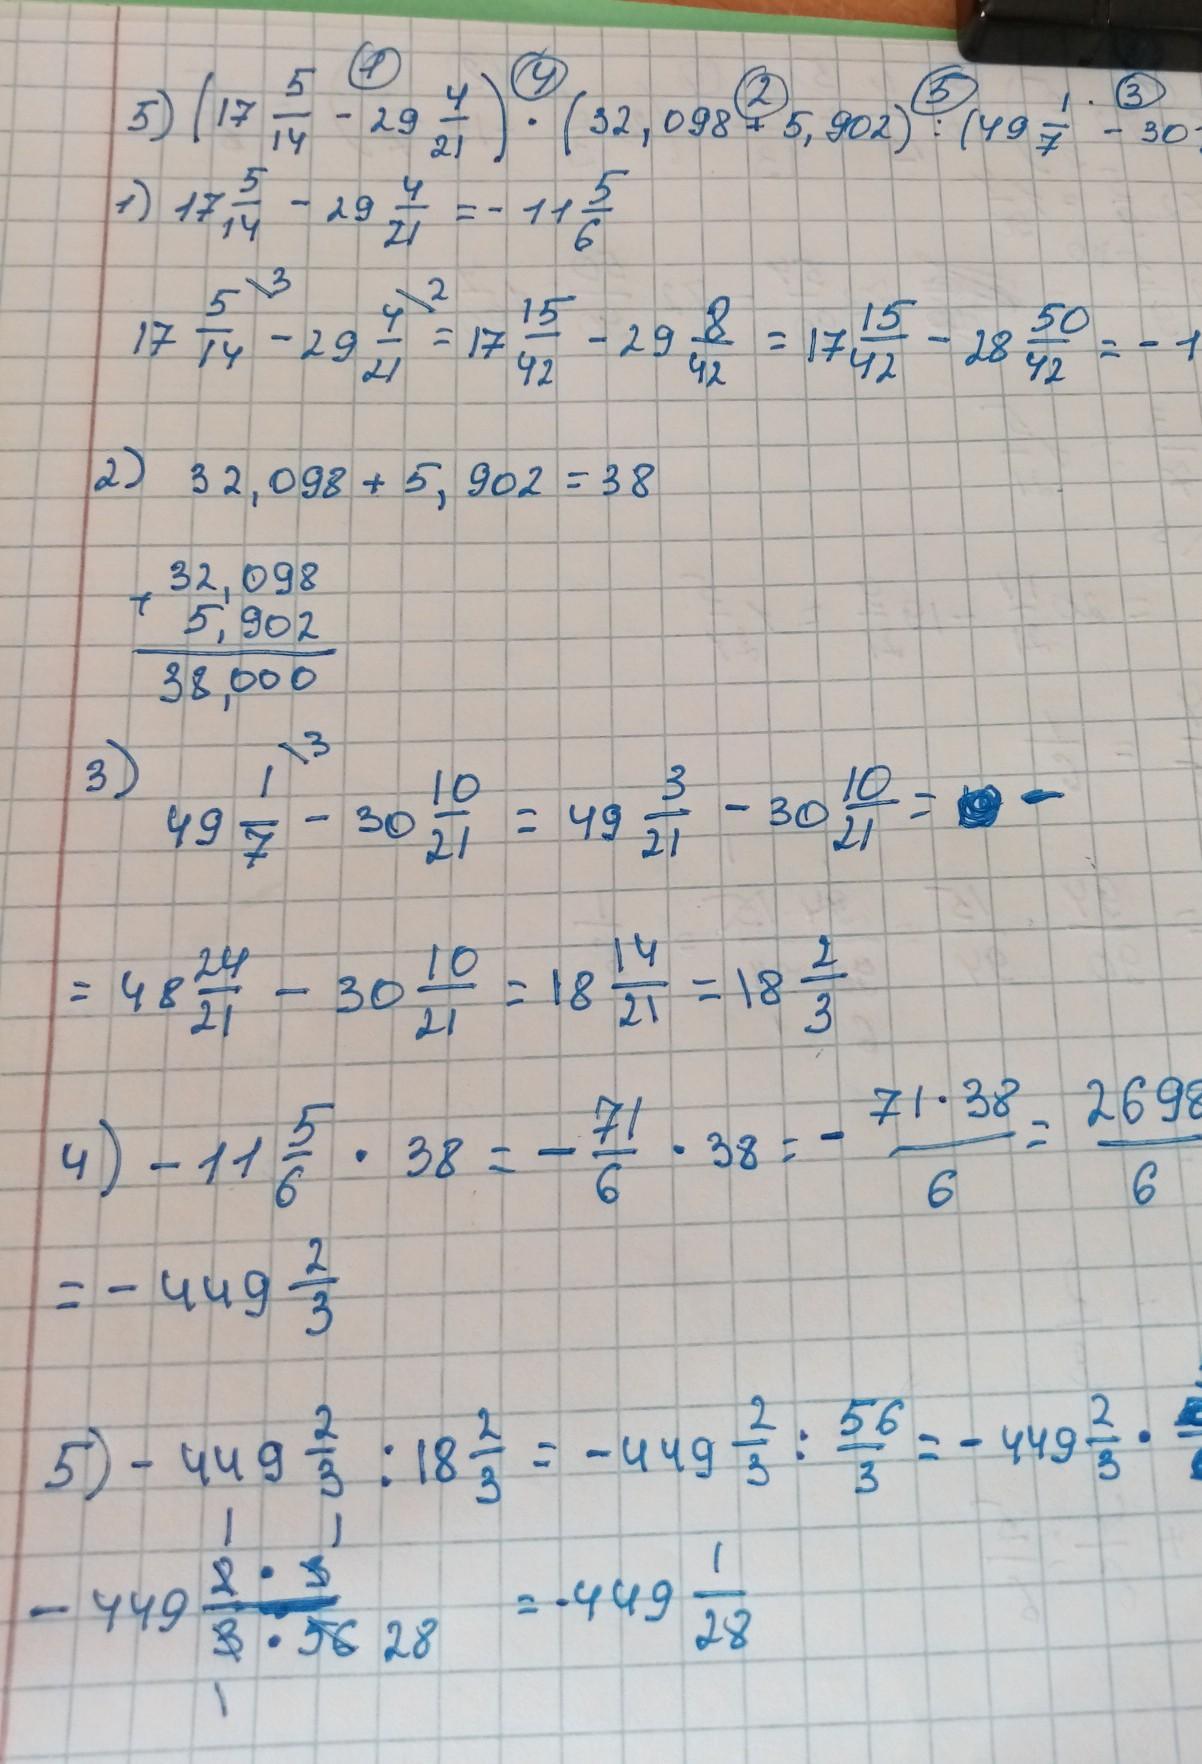 5) (17 5/14 - 29 4/21) · (32,098 + 5,902) : (49 1/7 - 30
1 4 2 5 3
1) 17 5/14 - 29 4/21 = - 11 5/6
17 5/14 \3 - 29 4/21 \2 = 17 15/42 - 29 8/42 = 17 15/42 - 28 50/42 = - 1
2) 32,098 + 5,902 = 38
+ 32,098
5,902
38,000
3) 49 1/7 \3 - 30 10/21 = 49 3/21 - 30 10/21 = -
= 48 24/21 - 30 10/21 = 18 14/21 = 18 2/3
4) - 11 5/6 · 38 = - 71/6 · 38 = - 71·38/6 = 2698/6
= - 449 2/3
5) - 449 2/3 : 18 2/3 = - 449 2/3 : 56/3 = - 449 2/3 ·
1 1
- 449 2 · 3/3 · 56 28 = - 449 1/28
1